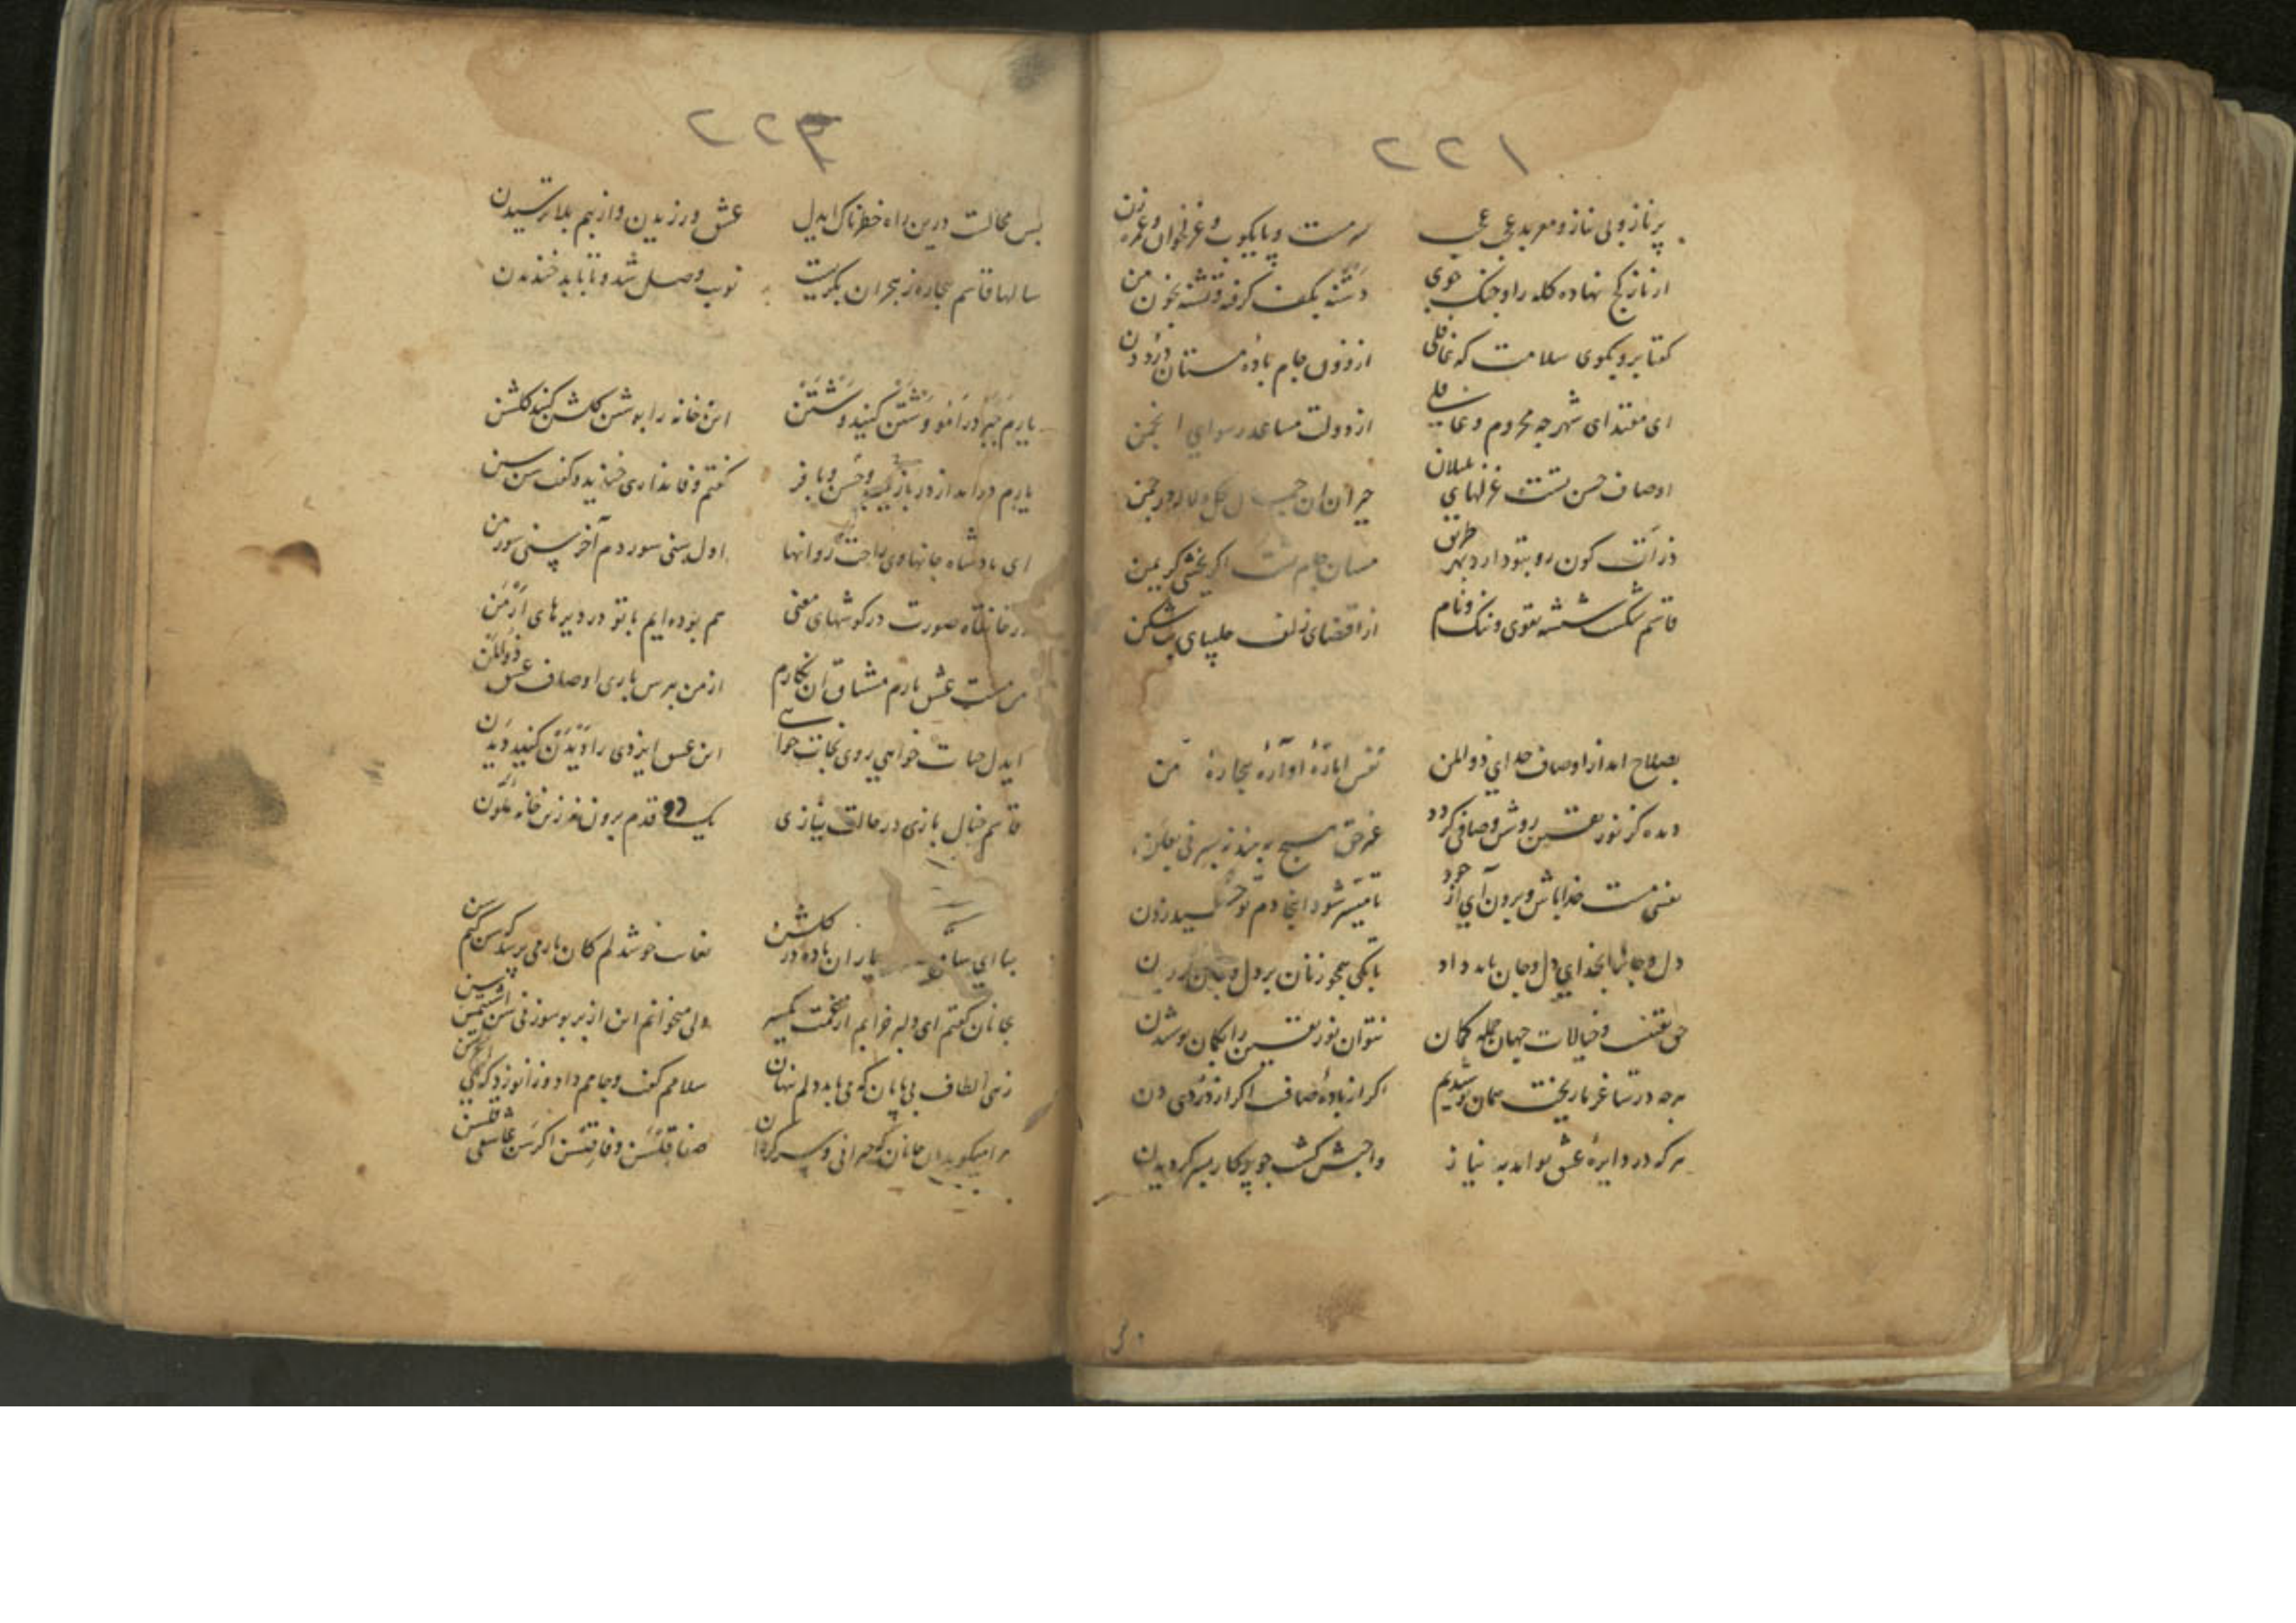 ۲۲۱
پر ناز و بی نیاز و معربد عجب عجب
سرمست و پایکوب و غزلخوان و نعره زن
از ناز کج نهاده کله را و جنک جوی
دشنه بکف کرفته و تشنه بخون من
کفتا برو بکوی سلامت که غافلی
از ذوق جام باده مستان درد دن
ای مقتدای شهر چه محروم و غافلی
از دولت مساعد رسوایی انجمن
اوصاف حسن تست غزلهای بلبلان
حیران ان جمال کل و لاله در چمن
ذرات کون رو بتو دارد بهر طریق
مستان جام تست اکر
قاسم شکست شیشه تقوی و ننک و نام
از اقتضای زلف چلیپای پرشکن
بصلاح اید از اوصاف خدای ذوالمن
نفس اماره آواره بیچاره من
دیده کز نور یقین روشن و صافی کردد
غیر حق هیچ نه بیند نه بسر نی بعلن
مست خدا باش و برون آی از خود
تا میسر شود اینجا دم توحید زدن
دل و جانرا بخدای دل و جان باید داد
تا بکی همچو زنان بر دل و جان لرزیدن
حق یقینست و خیالات جهان جمله کمان
نتوان نور یقین را بکمان پوشیدن
هرچه در ساغر ما ریخت همان نوشیدیم
اکر از باده صاف اکر از دردی دن
هرکه در دایره عشق تو اید به نیاز
واجبش کشت چو پرکار بسر کردیدن
۲۲۲
بس محالست درین راه خطرناک ایدل
عشق ورزیدن و از بیم بلا ترسیدن
سالها قاسم بیچاره ز هجران بکریست
نوبت وصل شد و تا باید خندیدن
یارم در آمو وشتن کنید وشتن
این خانه را بوشتن کلشن کنید کلشن
یارم درامد از در با زیب و حسن و با فر
کفتم وفا نداری خندید و کفت سن سن
ای پادشاه جانها وی راحت روانها
اول سنی سوردم آخر سنی سورمن
در خانقاه صورت در کوشهای معنی
هم بوده ایم با تو در دیرهای ارمن
من مست عشق یارم مشتاق آن نکارم
از من بپرس باری اوصاف عشق ذوالمن
ایدل حیات خواهی روی نجات خواهی
این عشق ایزدی را دیدن کنید دیدن
قاسم خیال بازی در حالت نیازی
یک دو قدم برون نه زین خانه ملون
بیا ای ساقی یاران باده در کلشن
بغایت خوشدلم کان یار می پرسد که سن کیم سن
بجانان کفتم ای دلبر خوابم
ولی میخوانم این از بر
زهی الطاف بی پایان که می باید دلم پنهان
سلامم کفت و جامم داد و زانو زد که
مرا میکوید ان جانان که حیرانی و سرکردان